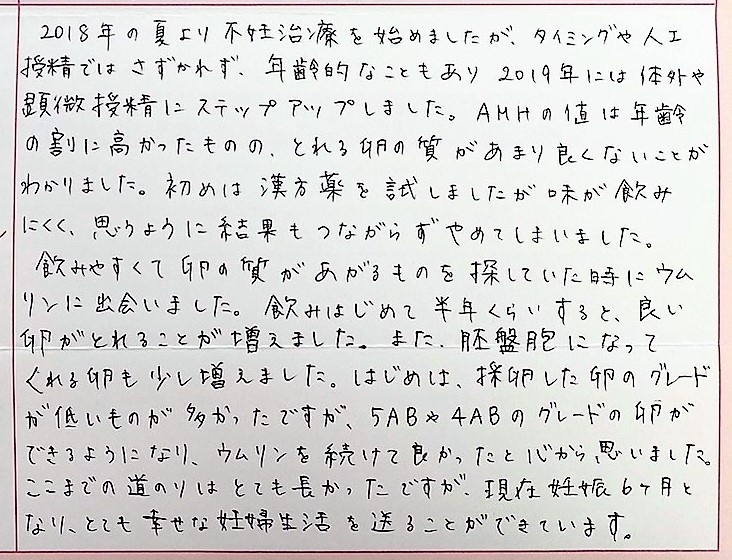 2018年の夏より不妊治療を始めましたが、タイミングや人工
授精ではさずかれず、年齢的なこともあり2019年には体外や
顕微授精にステップアップしました。AMHの値は年齢
の割に高かったものの、とれる卵の質があまり良くないことが
わかりました。初めは漢方薬を試しましたが味が飲み
にくく、思うように結果もつながらずやめてしまいました。
飲みやすくて卵の質があがるものを探していた時にウム
リンに出会いました。飲みはじめて半年くらいすると、良い
卵がとれることが増えました。また、胚盤胞になって
くれる卵も少し増えました。はじめは、採卵した卵のグレード
が低いものが多かったですが、5ABや4ABのグレードの卵が
できるようになり、ウムリンを続けて良かったと心から思いました。
ここまでの道のりはとても長かったですが、現在妊娠6ヶ月と
なり、とても幸せな妊婦生活を送ることができています。